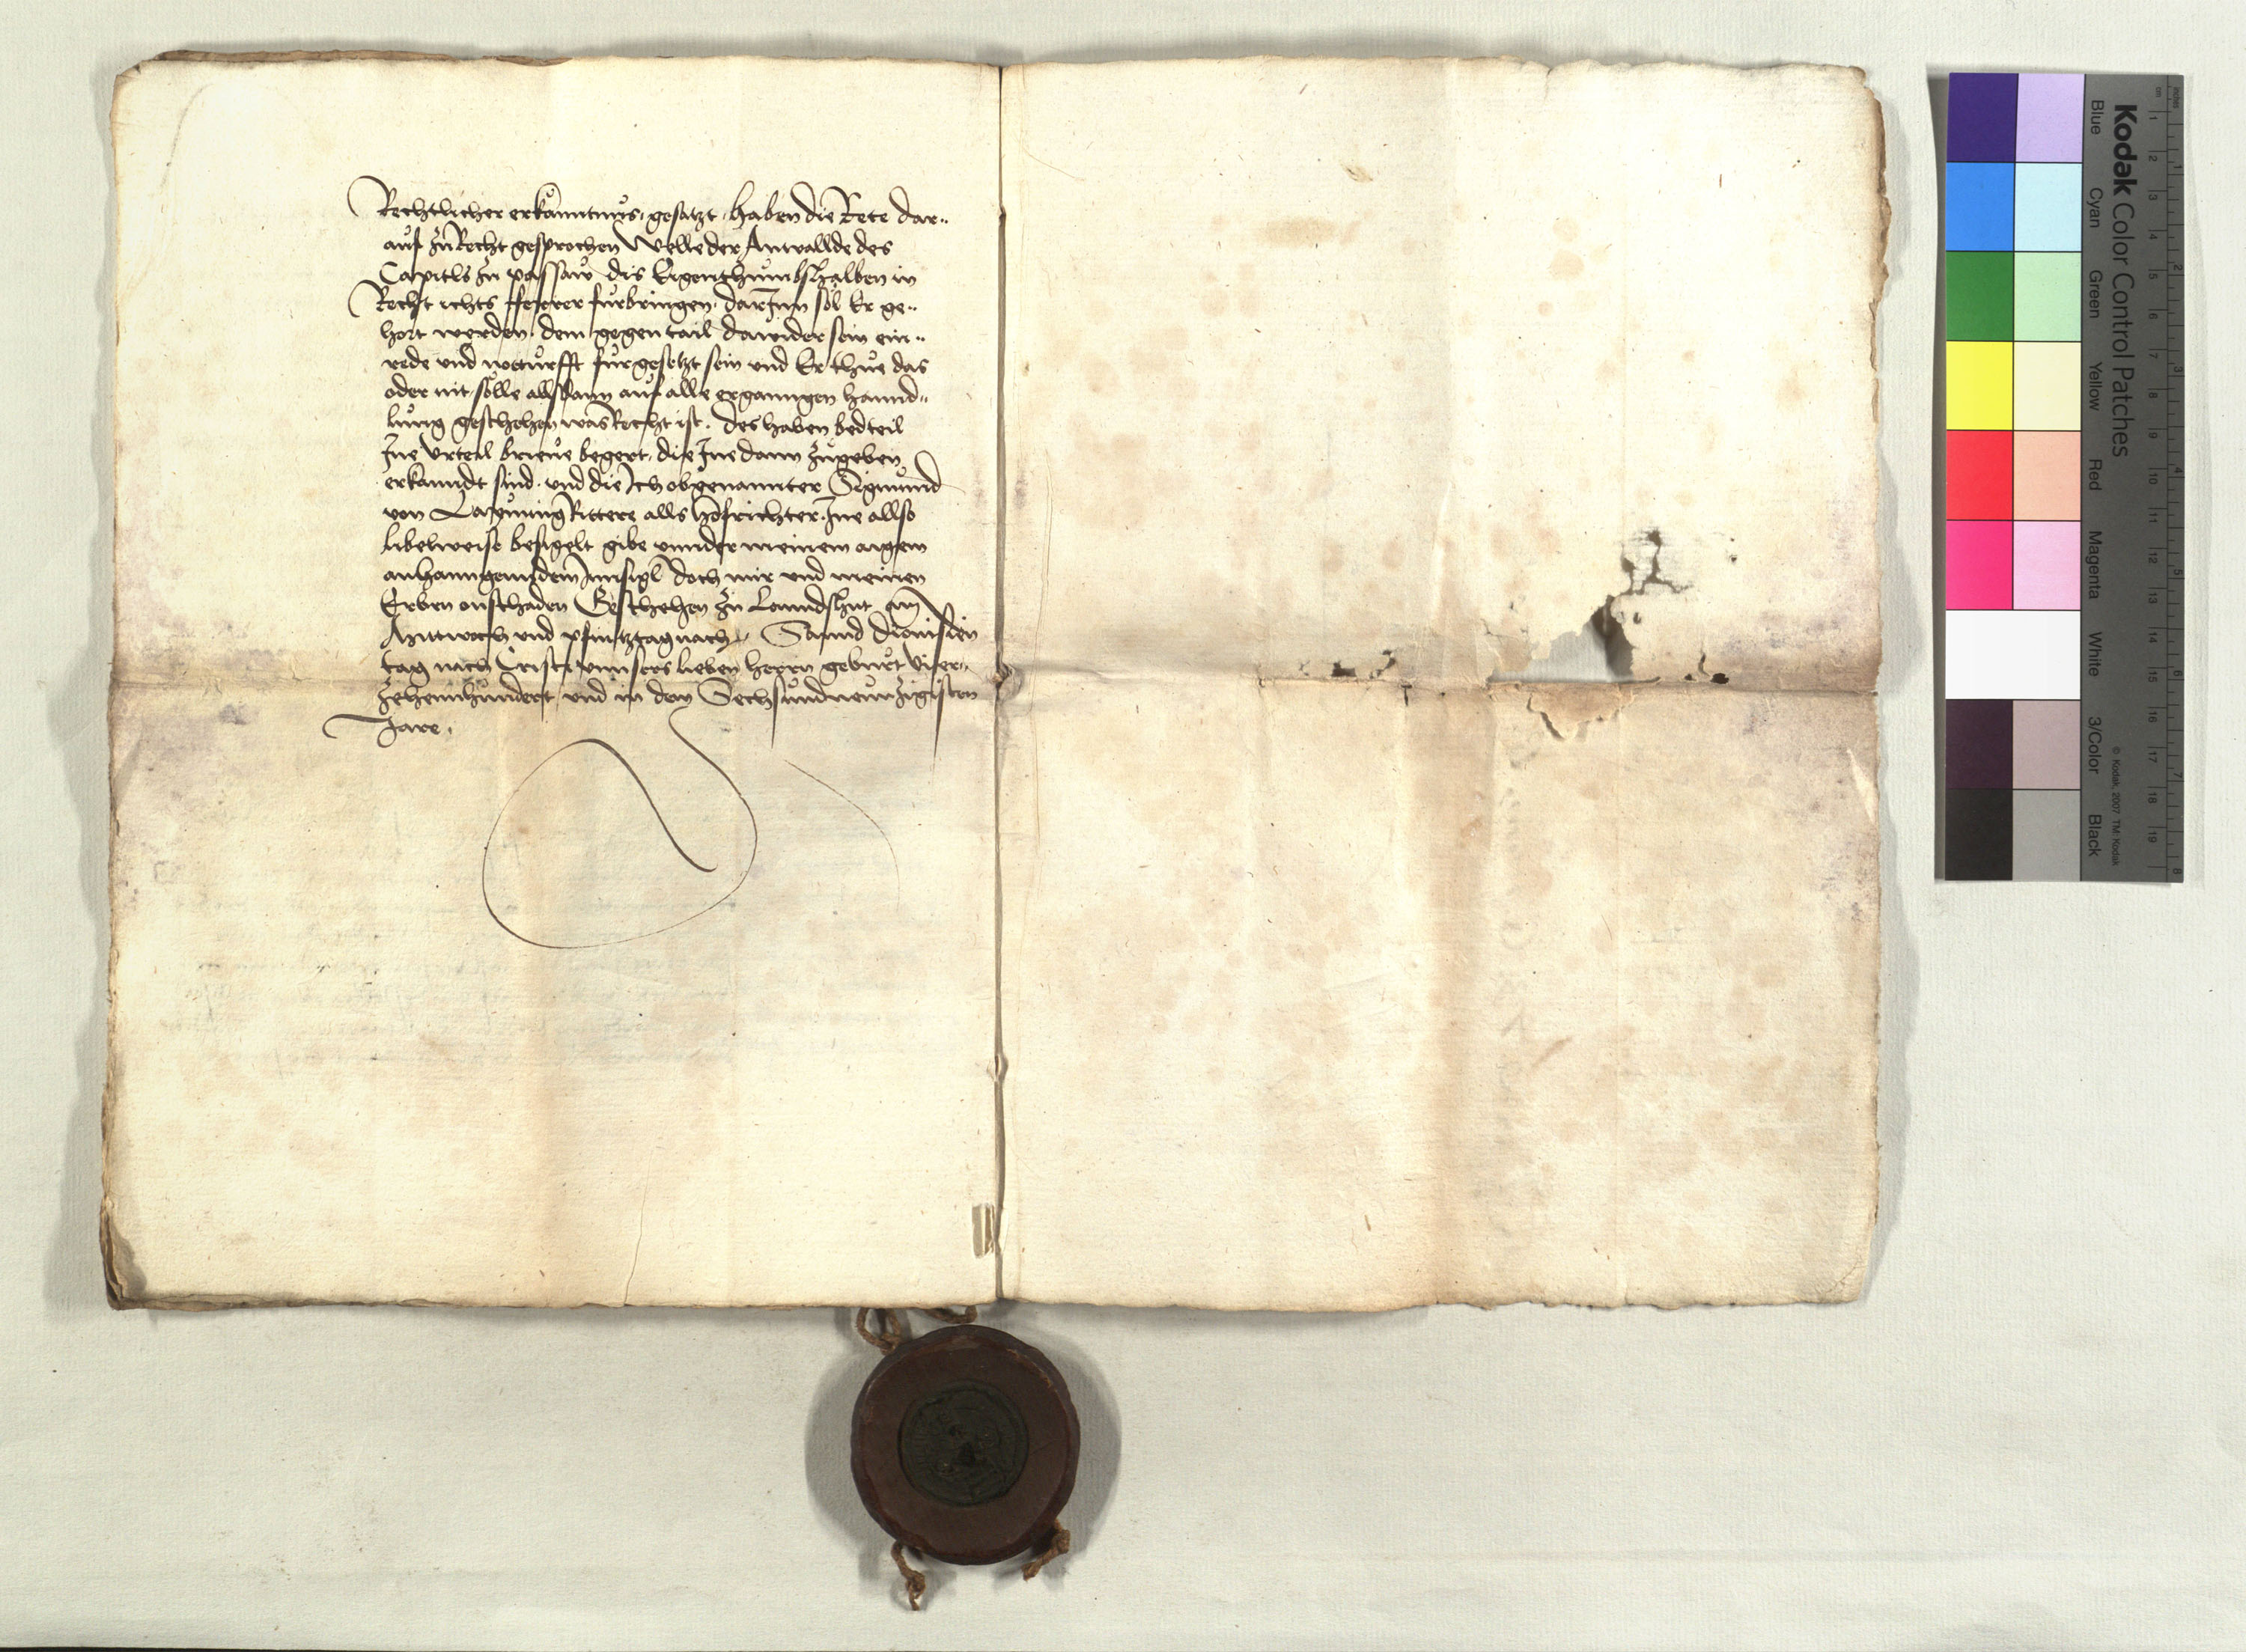 Rechtlicher erkanntnus, gesatzt, haben die Rete dar„
auf zu Recht gesprochen Welle der Anwallde des
Capitls zu passaw dis Eigenthumbshalben in
Recht ichts ffererer furbringen, darInn sol Er ge„
hort werden, dem gegentail dawider sein ein„
rede und notturfft furgesetzt sein und Er thue das
oder nit, solle allsdann auf alle ergangen hannd„
lung geschehen was Recht ist. des haben bed teil
Ine Urteil brieue begert, die Ine dann zugeben
erkanndt sind. und die Ich obgenannter Sigmund
von Layming Rittere alls hofrichter, Ine allso
libelweise besigelt gibe unnder meinem aigem
anhanngenndem Innsigl doch mir und meinen
Erben onschaden Geschehen zu Lanndshut am
Mittwoch und pfintztag nach„ Sannd Dionisien
tag nach Cristi unnsers lieben herrn geburt Vier„
zehennhundert und in dem Sechsundneunzigisten
Jare.
Kodak Color Control Patches
Blue Cyan Green Yellow Red Magenta White 3/Color Black
© Kodak, 2007 TM: Kodak
inches 1 2 3 4 5 6 7 8
cm 1 2 3 4 5 6 7 8 9 10 11 12 13 14 15 16 17 18 19